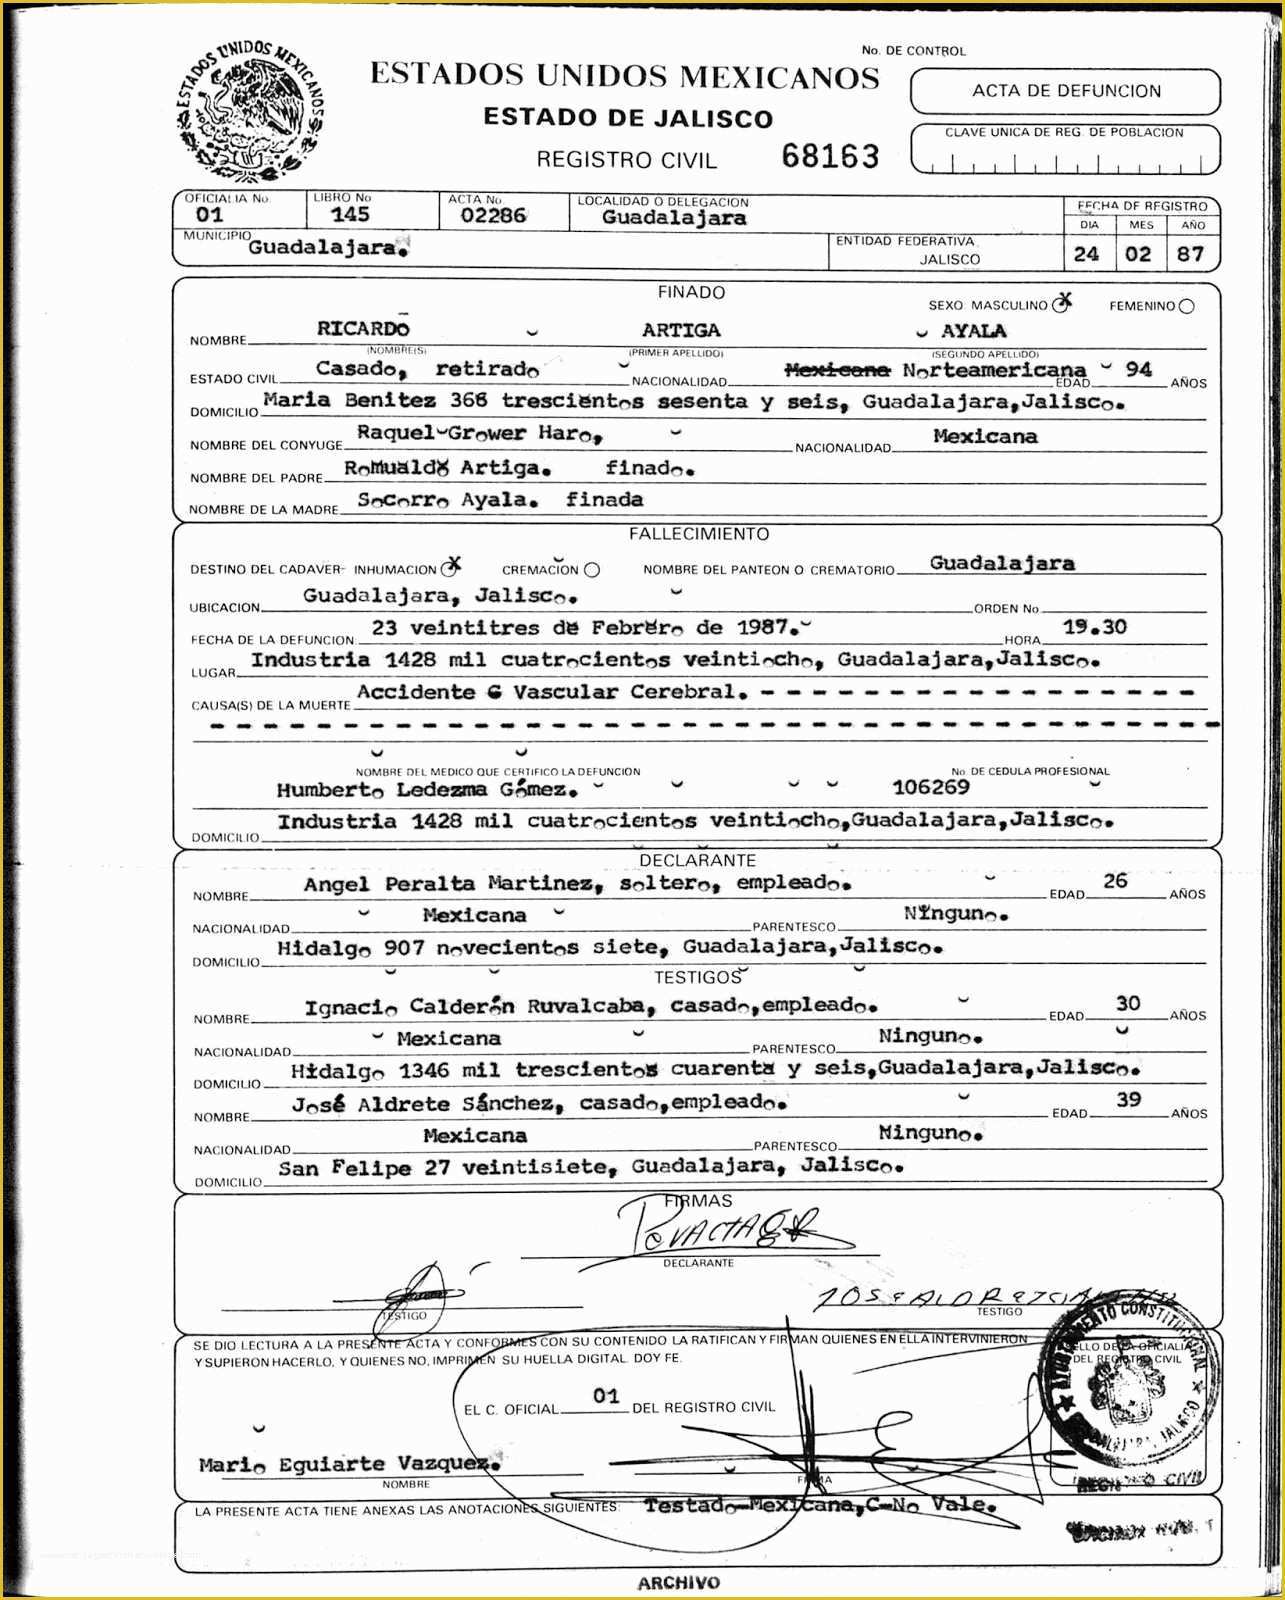 No. DE CONTROL
ESTADOS UNIDOS MEXICANOS
ESTADOS UNIDOS MEXICANOS
ACTA DE DEFUNCION
ESTADO DE JALISCO
CLAVE UNICA DE REG. DE POBLACION
REGISTRO CIVIL 68163
OFICIALIA No. LIBRO No ACTA No. LOCALIDAD O DELEGACION FECHA DE REGISTRO
01 145 02286 Guadalajara DIA MES AÑO
MUNICIPIO Guadalajara. ENTIDAD FEDERATIVA JALISCO 24 02 87
FINADO
SEXO MASCULINO X FEMENINO
NOMBRE RICARDO ARTIGA AYALA
(NOMBRE(S) (PRIMER APELLIDO) (SEGUNDO APELLIDO)
ESTADO CIVIL Casado, retirado NACIONALIDAD Mexicana Norteamericana EDAD 94 AÑOS
DOMICILIO Maria Benitez 366 trescientos sesenta y seis, Guadalajara,Jalisco.
NOMBRE DEL CONYUGE Raquel Grower Haro, NACIONALIDAD Mexicana
NOMBRE DEL PADRE Romualdo Artiga. finado.
NOMBRE DE LA MADRE Socorro Ayala. finada
FALLECIMIENTO
DESTINO DEL CADAVER- INHUMACION X CREMACION NOMBRE DEL PANTEON O CREMATORIO Guadalajara
UBICACION Guadalajara, Jalisco. ORDEN No
FECHA DE LA DEFUNCION 23 veintitres de Febrero de 1987. HORA 19.30
LUGAR Industria 1428 mil cuatrocientos veintiocho, Guadalajara,Jalisco.
CAUSA(S) DE LA MUERTE Accidente C Vascular Cerebral. - - - - - - - - - - - - - - - - -
NOMBRE DEL MEDICO QUE CERTIFICO LA DEFUNCION No. DE CEDULA PROFESIONAL
Humberto Ledezma Gómez. 106269
DOMICILIO Industria 1428 mil cuatrocientos veintiocho,Guadalajara,Jalisco.
DECLARANTE
NOMBRE Angel Peralta Martinez, soltero, empleado. EDAD 26 AÑOS
NACIONALIDAD Mexicana PARENTESCO Ninguno.
DOMICILIO Hidalgo 907 novecientos siete, Guadalajara,Jalisco.
TESTIGOS
NOMBRE Ignacio Calderón Ruvalcaba, casado,empleado. EDAD 30 AÑOS
NACIONALIDAD Mexicana PARENTESCO Ninguno.
DOMICILIO Hidalgo 1346 mil trescientos cuarenta y seis,Guadalajara,Jalisco.
NOMBRE José Aldrete Sánchez, casado,empleado. EDAD 39 AÑOS
NACIONALIDAD Mexicana PARENTESCO Ninguno.
DOMICILIO San Felipe 27 veintisiete, Guadalajara, Jalisco.
FIRMAS
DECLARANTE
JOSE ALDRETE
TESTIGO TESTIGO
SE DIO LECTURA A LA PRESENTE ACTA Y CONFORMES CON SU CONTENIDO LA RATIFICAN Y FIRMAN QUIENES EN ELLA INTERVINIERON
Y SUPIERON HACERLO, Y QUIENES NO, IMPRIMEN SU HUELLA DIGITAL. DOY FE.
SELLO DE LA OFICIALIA
DEL REGISTRO CIVIL
AYUNTAMIENTO CONSTITUCIONAL
GUADALAJARA, JALISCO
EL C. OFICIAL 01 DEL REGISTRO CIVIL
Mario Eguiarte Vazquez.
NOMBRE FIRMA
REGISTRO CIVIL
LA PRESENTE ACTA TIENE ANEXAS LAS ANOTACIONES SIGUIENTES: Testado-Mexicana,C-No Vale.
ARCHIVO